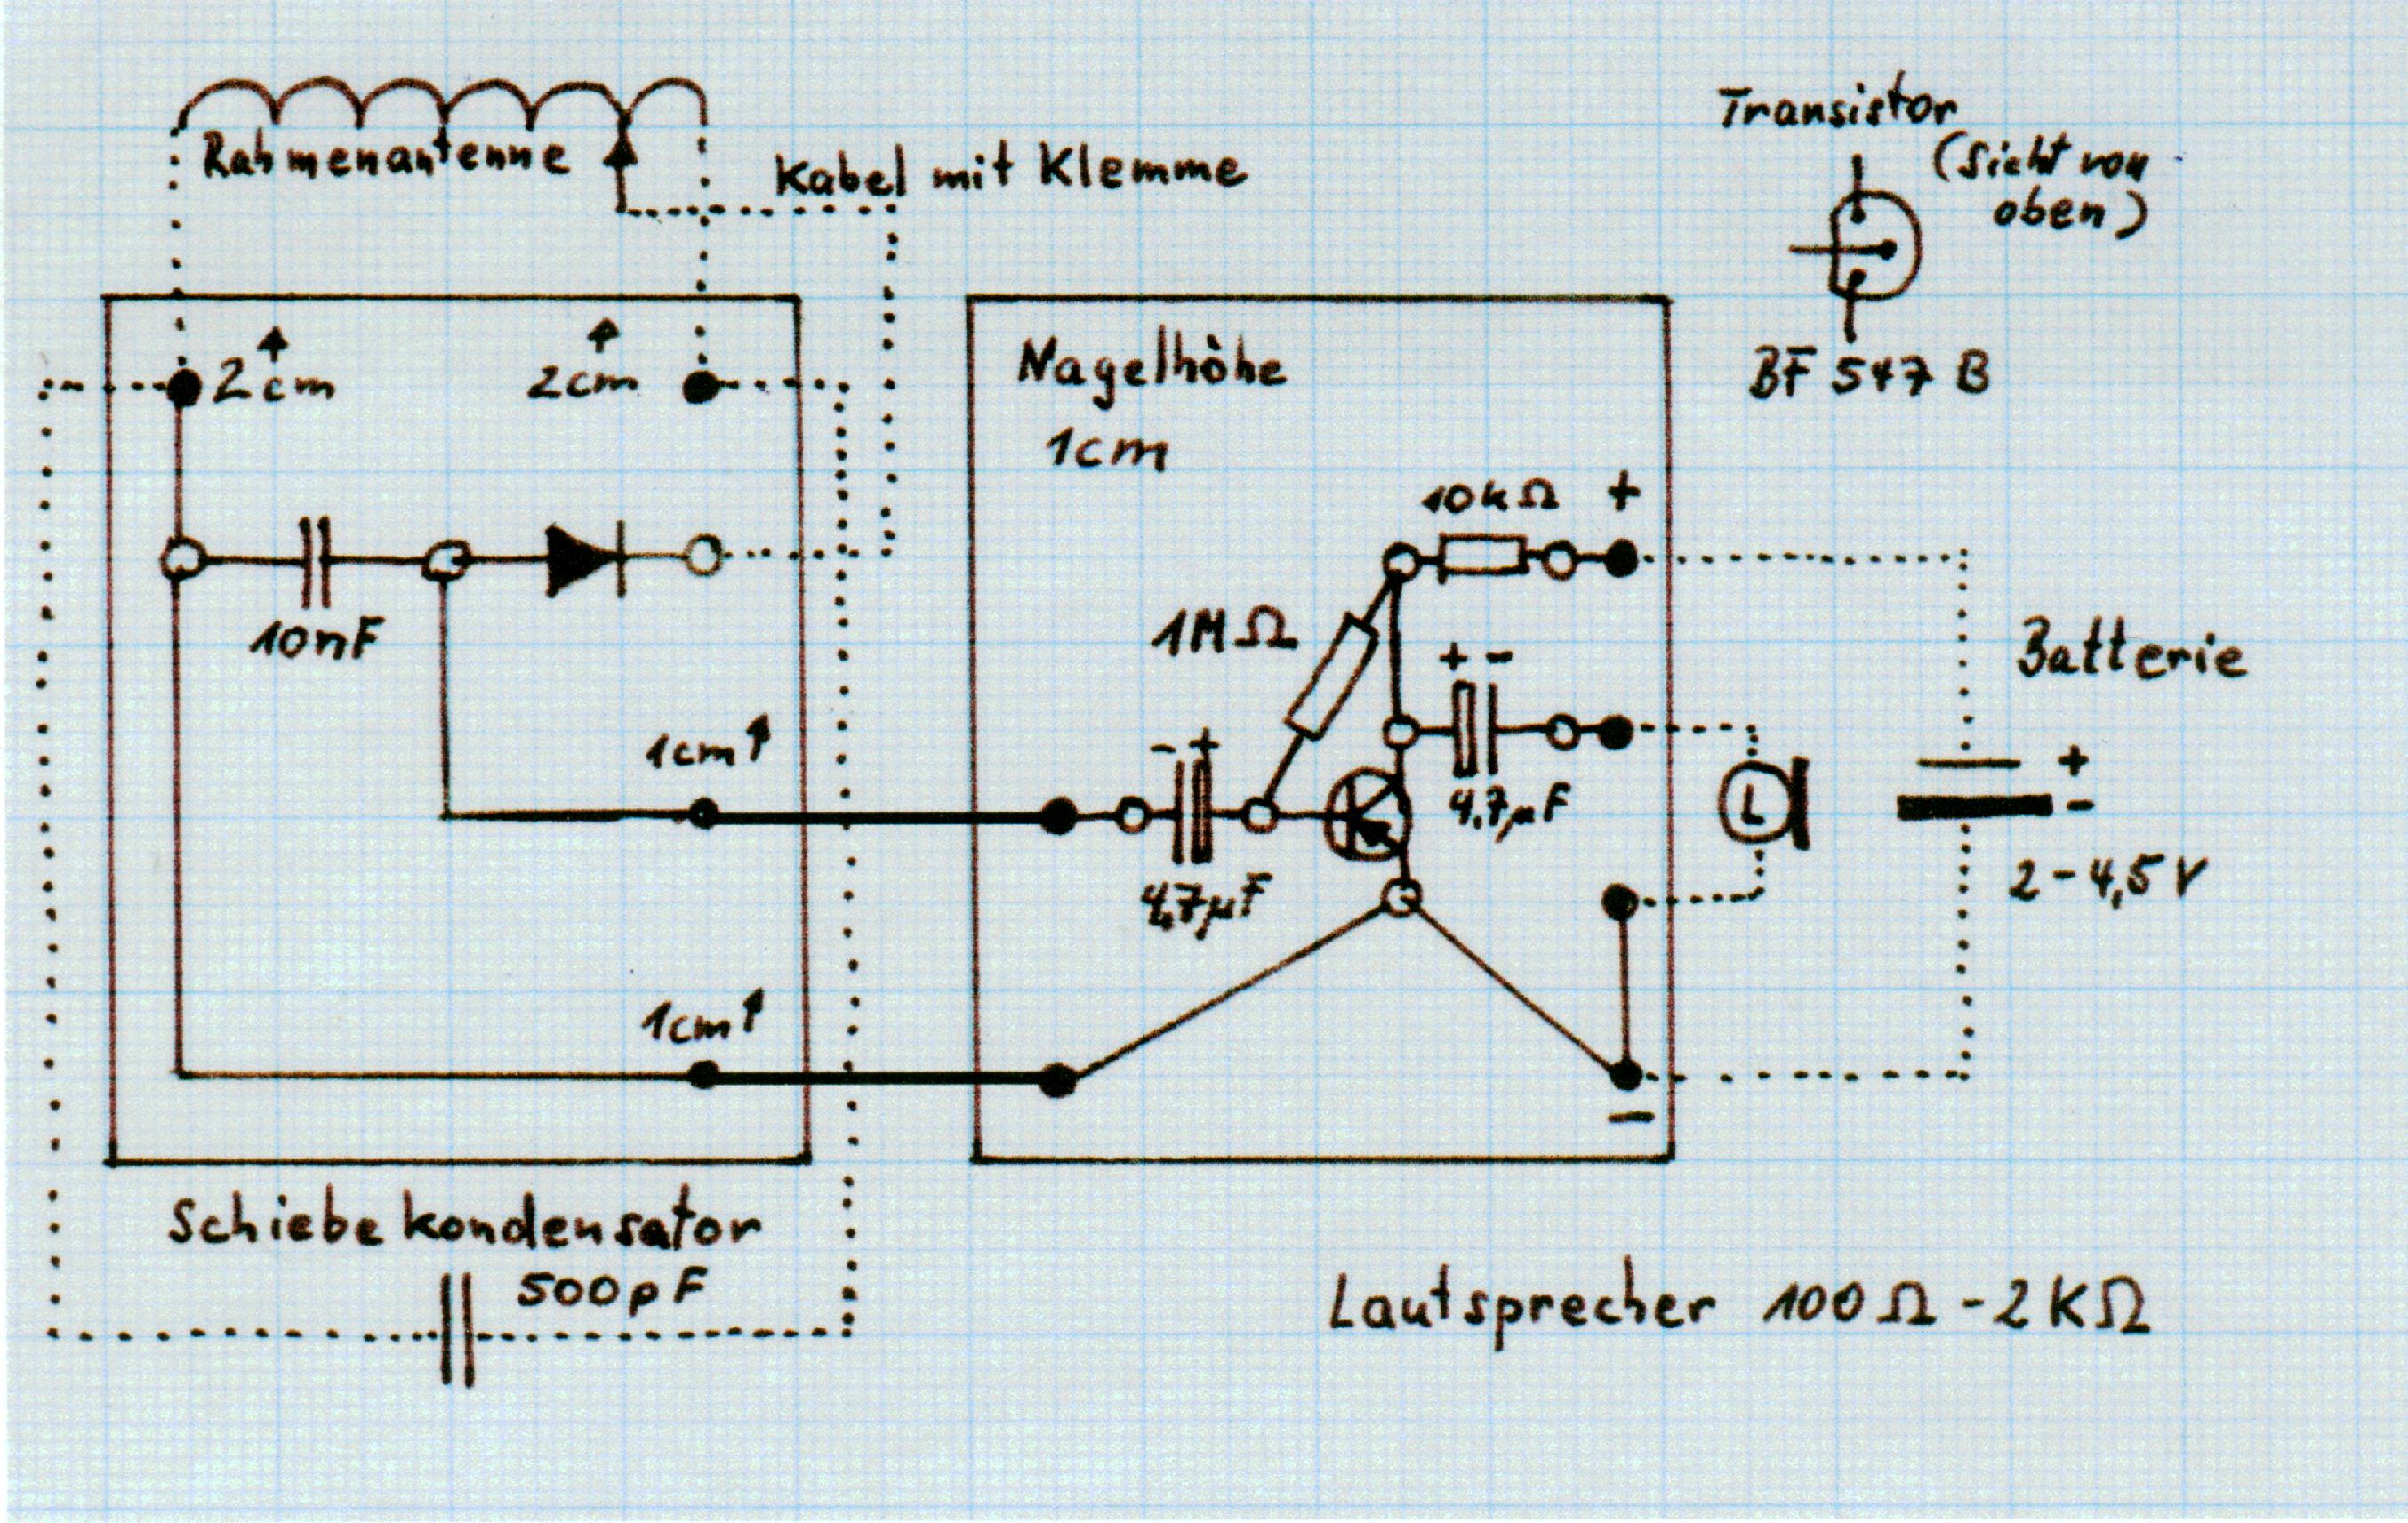 Rahmenantenne
Kabel mit Klemme
Transistor
(Sicht von
oben)
BF 547 B
2cm
2cm
Nagelhöhe
1cm
10kΩ +
10nF
1MΩ
+ -
Batterie
1cm
- +
4,7µF
L
+
-
4,7µF
2-4,5V
1cm
-
Schiebekondensator
500pF
Lautsprecher 100Ω-2KΩ